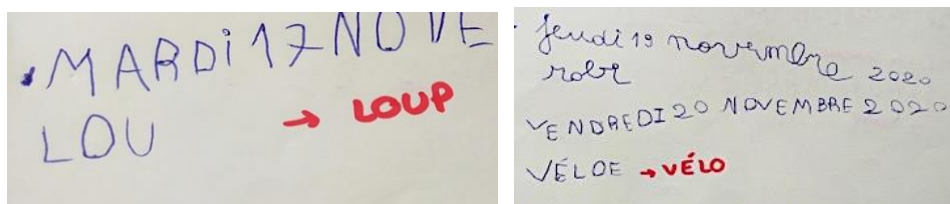 MARDi 17 NOVE
LOU → LOUP
jeudi 19 novembre 2020
robe
VENDREDI 20 NOVEMBRE 2020
VÉLOE → VÉLO